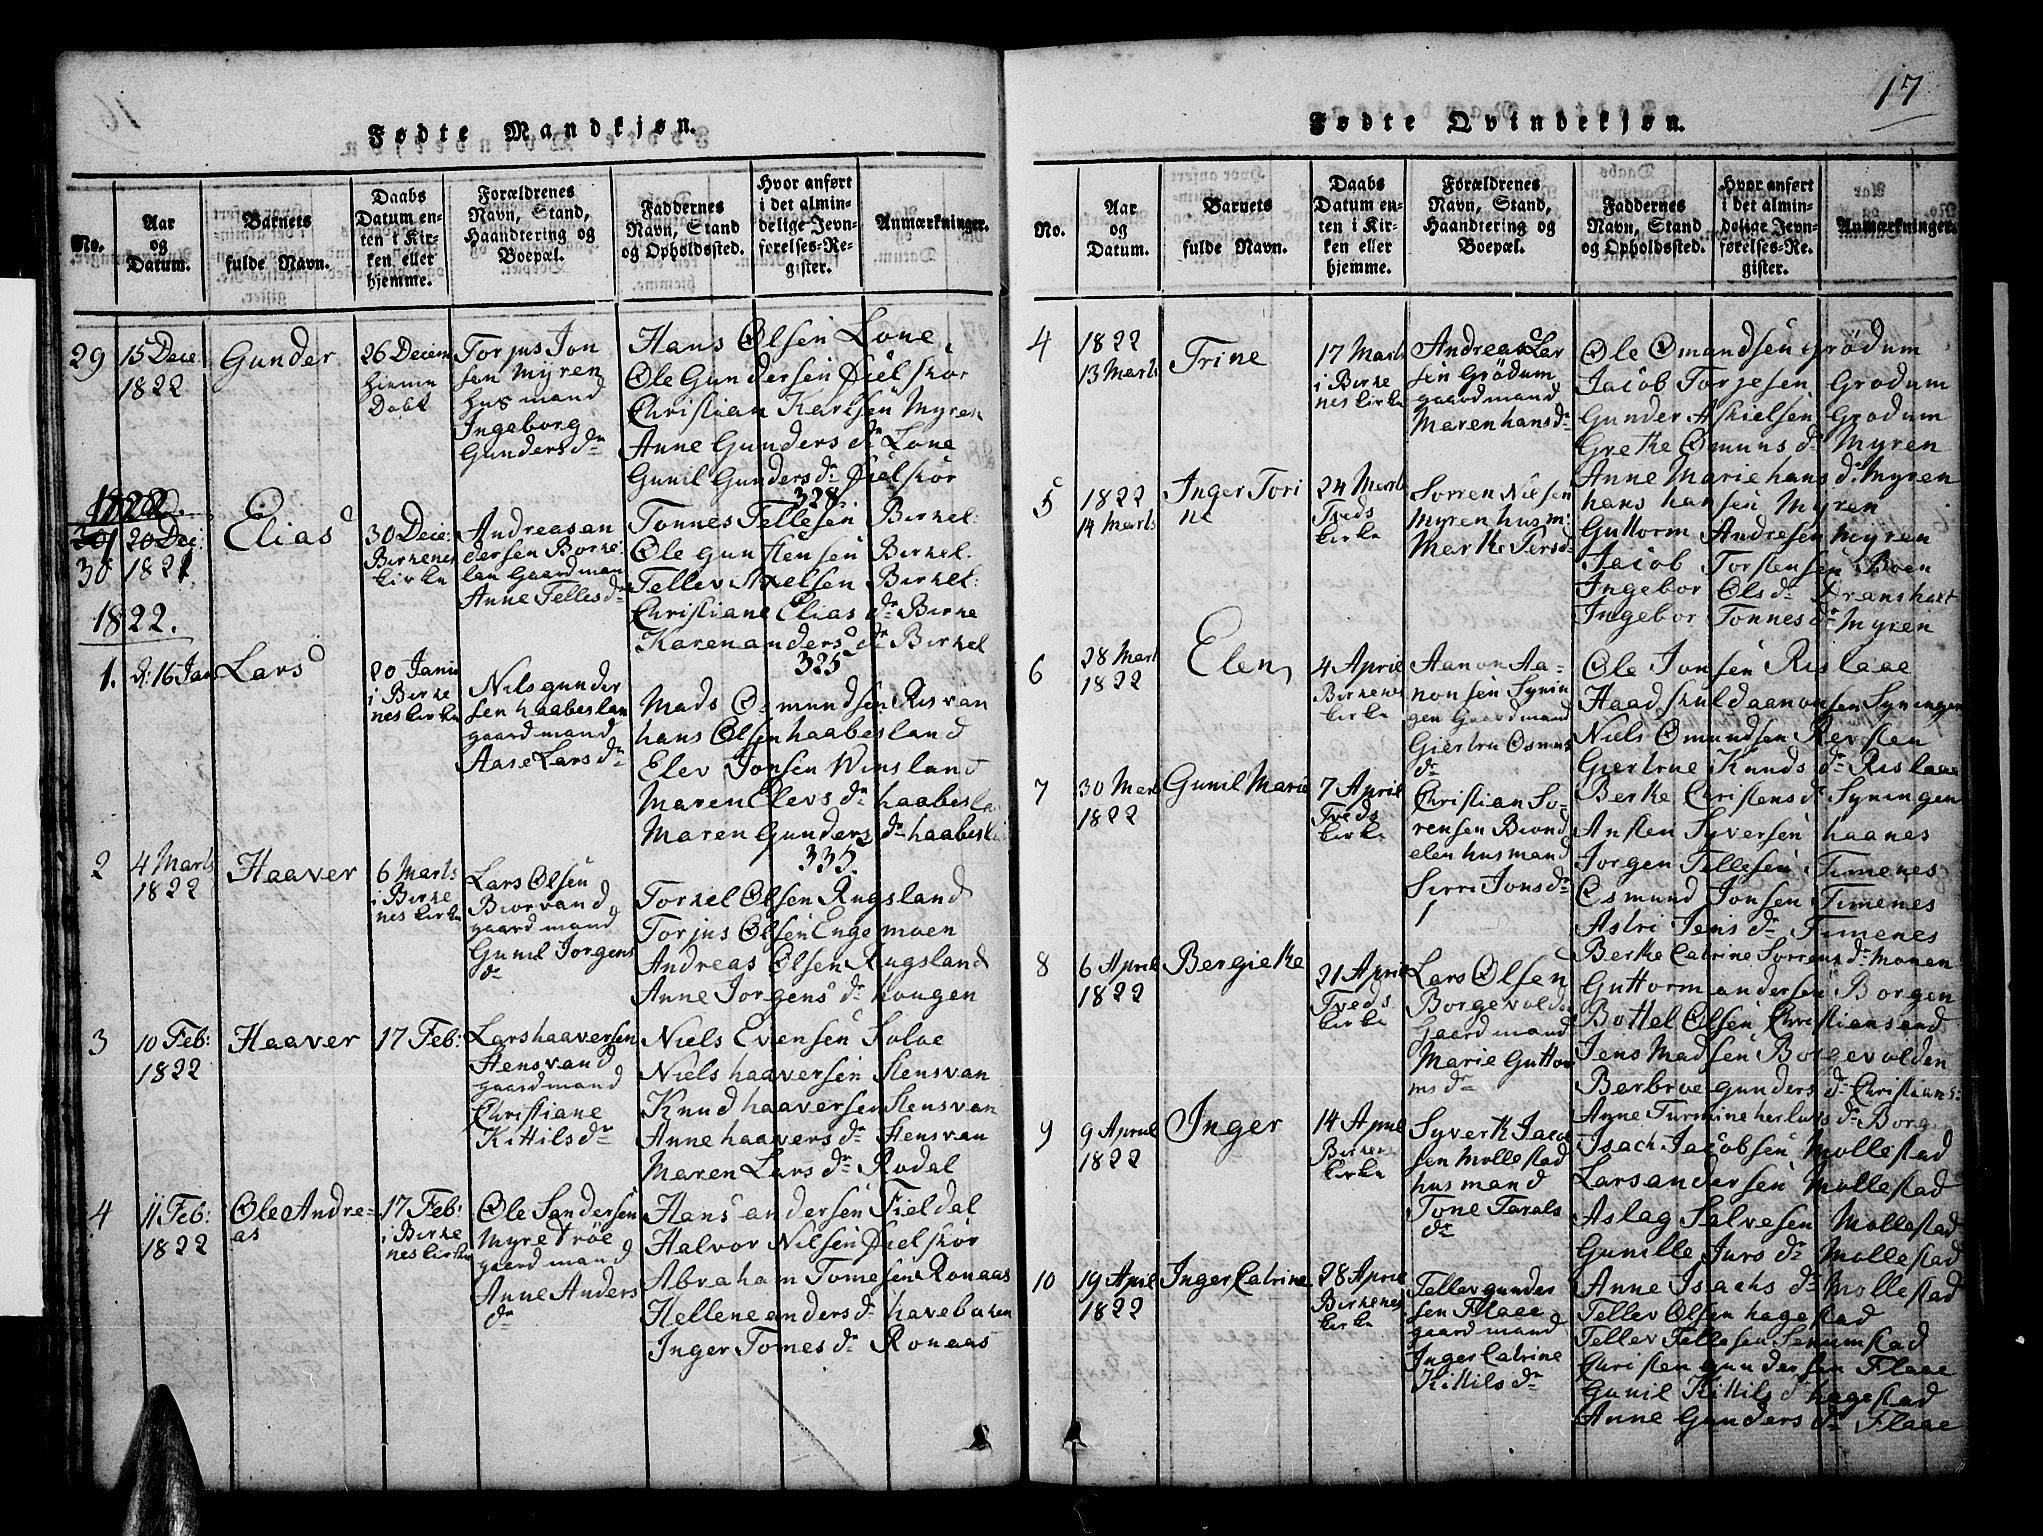 17
Fødte Mandkjøn.
No.
Aar
og
Datum.
Barnets
fulde Navn.
Daabs
Datum en-
ten i Kir-
ken eller
hjemme.
Forældrenes
Navn, Stand,
Haandtering og
Boepæl.
Faddernes
Navn, Stand
og Opholdssted.
Hvor anført
i det almin-
delige Jevn-
førelses-Re-
gister.
Anmærkninger.
29
15 Dece
1822
Gunder
26 Decem
hiemme
Døbt
Torjus Jon
sen Myren
husmand
Ingeborg
Gunders dr
Hans Olsen Lone
Ole Gundersen
Christian Karlsen Myren
Anne Gunders dr Lone
Gunil Gunders dr
1822
328
30
20 Dec:
1821
Elias
30 Dece:
Birkenes
kirke
Andreas an
dersen Borke
len Gaardman
Anne Telles dr
Tonnes Tellesen Birkel:
Ole gunstensen Birkel:
Tellev Axelsen Birkel:
Christiane Elias dr Birke
Karen anders dr Birkel
1822.
325
1.
d: 16 Jan
Lars
20 Janu
i Birke
nes kirke
Nils gunder
sen haabeslan
gaardmand
Aase Lars dr
Mads Osmundsen Risvan
hans Olsen haabesland
Elev Jonsen Vinsland
Maren Elevs dr haabesla
Maren Gunders dr haabesla
335
2
4 Marts
1822
Haaver
6 Marts
i Birke
nes kirke
Lars Olsen
Biorvand
gaardmand
Gunil Jorgens
dr
Torkel Olsen Rugsland
Torjus Olsen Engemoen
Andreas Olsen Rugsland
Anne Jorgens dr hougen
3
10 Feb:
1822
Haaver
17 Feb:
Lars haaversen
Stensvand
gaardmand
Christiane
Kittils dr
Niels Evensen Solae
Niels haaversen Stensvan
Knud haaversen Stensvan
Anne haavers dr Stensvan
Maren Lars dr Rodal
4
11 Feb:
1822
Ole Andre-
as
17 Feb:
i Birke
nes kirke
Ole Sandersen
Myretröe
gaardmand
Anne Anders
dr
Hans andersen Fieldal
Halvor Nilsen
Abraham Tomesen Ronaas
Hellene anders dr havebaken
Inger Tomes dr Ronaas
Fødte Qvindekjøn.
No.
Aar
og
Datum.
Barnets
fulde Navn.
Daabs
Datum en-
ten i Kir-
ken eller
hjemme.
Forældrenes
Navn, Stand,
Haandtering og
Boepæl.
Faddernes
Navn, Stand
og Opholdssted.
Hvor anført
i det almin-
delige Jevn-
førelses-Re-
gister.
Anmærkninger.
4
1822
13 Marts
Trine
17 Marts
i Birke
nes kirke
Andreas Lar
sen Grödum
gaardmand
Maren hans dr
Ole Omandsen Grödum
Jacob Torjesen Grodum
Gunder Askielsen Grodum
Grethe Omuns dr Myren
Anne Marie hans dr Myren
5
1822
14 Marts
Inger Tori
ne
24 Marts
Tveds
kirke
Sorren Nilsen
Myren husm:
Marthe Pers dr
hans hansen Myren
Guttorm Andresen Myren
Jacob Torstensen Boen
Ingebor Ols dr
Ingebor Tonnes dr Myren
6
28 Mart
1822
Elen
4 April
Birkenes
kirke
Aanon Aa-
nonsen Synin
gen Gaardmand
Giertru Osmus
dr
Ole Jonsen Rislaae
Haadskul daanonsen Syningen
Niels Omundsen Revsten
Giertrue Knuds dr Rislaae
Berthe Christens dr Syningen
7
30 Mart
1822
Gunil Marie
7 April
Tveds
kirke
Christian So-
rensen Biond
elen husmand
Sirri Jons dr
Ansten Syversen haanes
Jorgen Tellesen Timenes
Osmund Jonsen Timenes
Astri Jens dr Timenes
Berthe Catrine Sorrens dr Monen
8
6 April
1822
Bergiethe
21 April
Tveds
kirke
Lars Olsen
Borgevolde
Gaardmand
Marie Guttor
ms dr
Guttorm andersen Borgen
Bottel Olsen Christiansand
Jens Madsen Borgevolden
Berbroe gunders dr Christians:
Anne Turmine herlufs dr Borg
9
9 April
1822
Inger
14 April
Birkenes
kirke
Syvert Jacob
sen Mollestad
husmand
Tone Tarals
dr
Isach Jacobsen Mollestad
Lars andersen Mollestad
Aslag Salvesen Mollestad
Gunille Jurs dr Mollestad
Anne Isachs dr Mollestad
10
19 April
1822
Inger Catrine
28 April
Birkenes
kirke
Tellev gunder
sen Flaae
gaardmand
Inger Catrine
Kittils dr
Tellev Olsen hagestad
Tellev Tellesen Senumstad
Christen gundersen Flaae
Gunil Kittils dr hagestad
Anne Gunders dr Flaae